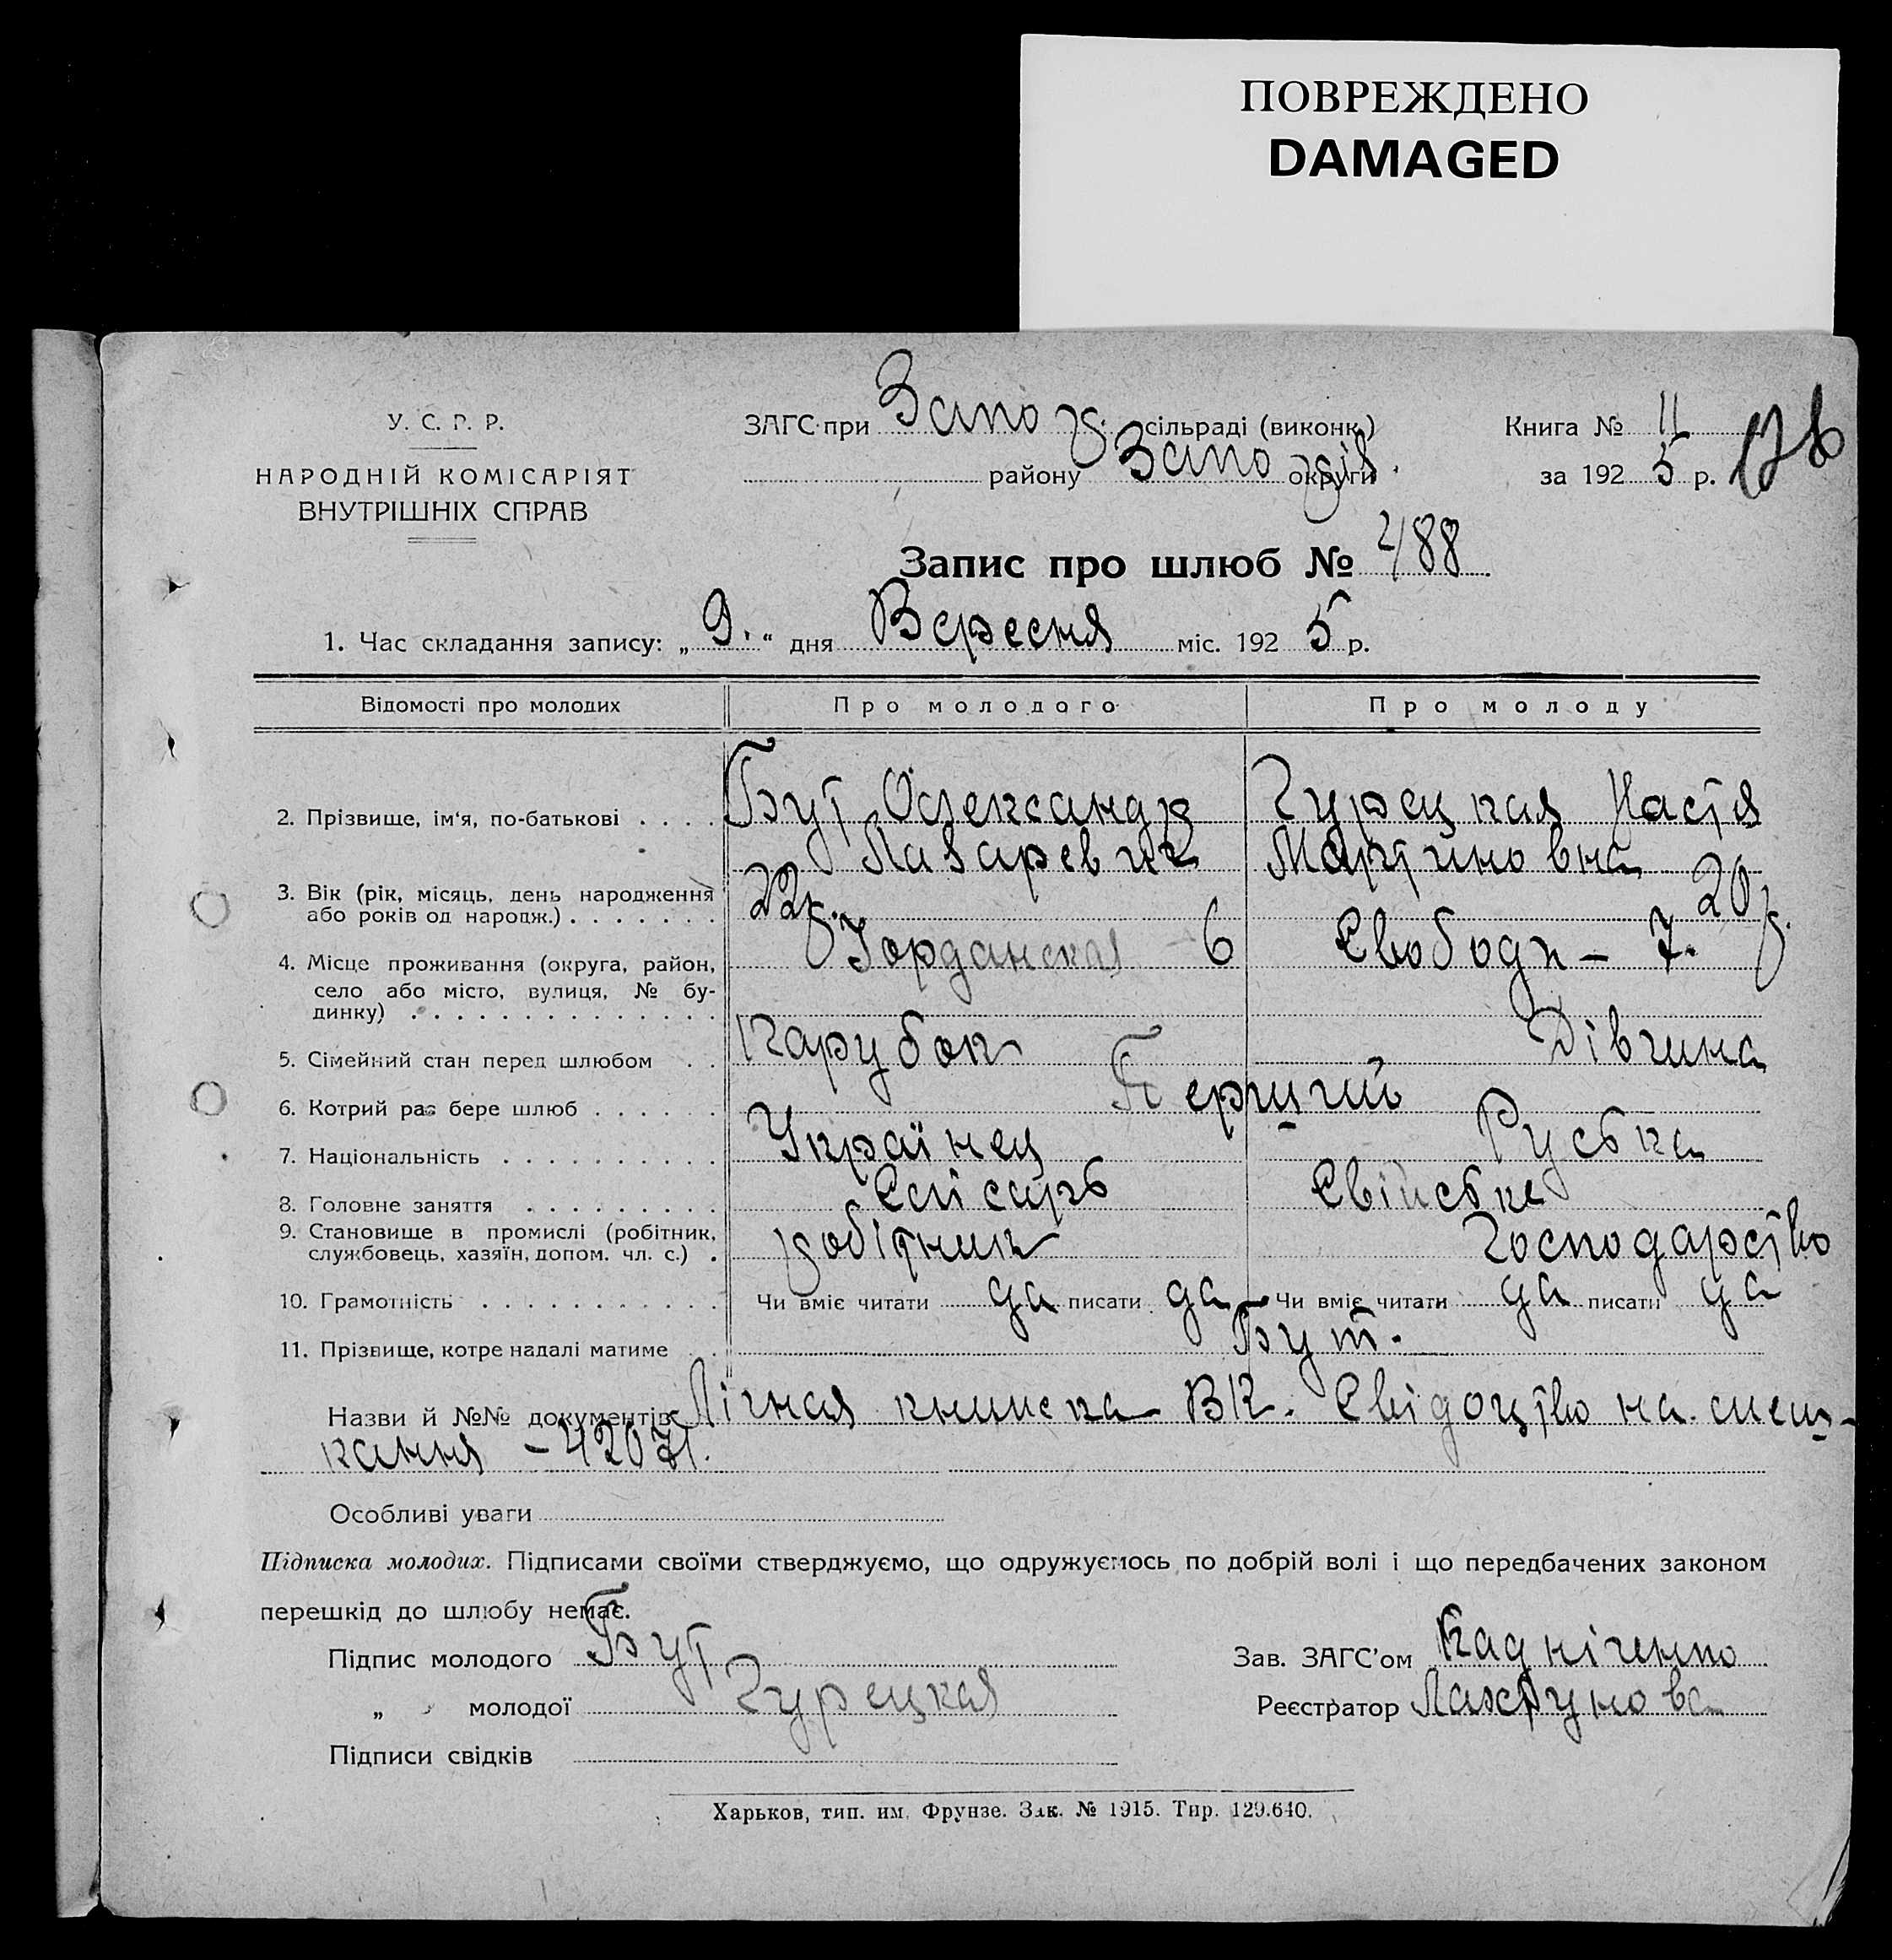 ПОВРЕЖДЕНО
DAMAGED
У. С. Р. Р.
НАРОДНІЙ КОМІСАРІЯТ
ВНУТРІШНІХ СПРАВ
ЗАГС при Запо сільраді (виконк.)
району Запо округи
Книга № 11
за 1925 р.
Запис про шлюб № 488
1. Час складання запису: „9.“ дня Вересня міс. 1925 р.
Відомості про молодих Про молодого Про молоду
2. Прізвище, ім'я, по-батькові . . . . Бут Олександр Гурецкая Настя
Лазаревич Мартиновна
3. Вік (рік, місяць, день народження або років од народж.) . . . . . . . 22р. 20р.
4. Місце проживання (округа, район, село або місто, вулиця, № будинку) . . . . . . . Іорданская 6 Свободи – 7.
5. Сімейний стан перед шлюбом . . Парубок Дівчина
6. Котрий раз бере шлюб . . . . . . Перший
7. Національність . . . . . . . . . . Українец Руська
8. Головне заняття . . . . . . . . . Слісарь Свійське
9. Становище в промислі (робітник, службовець, хазяїн, допом. чл. с.) . робітник Господарство
10. Грамотність . . . . . . . . . . . Чи вміє читати да писати да Чи вміє читати да писати да
11. Прізвище, котре надалі матиме . . Бут.
Назви й №№ документів Лічная книжка ВК. Свідоцтво на меш-
кання – 42071.
Особливі уваги
Підписка молодих. Підписами своїми стверджуємо, що одружуємось по добрій волі і що передбачених законом
перешкід до шлюбу немає.
Підпис молодого Бут Зав. ЗАГС'ом Кадніченко
„ молодої Гурецкая Реєстратор Лахтунова
Підписи свідків
Харьков, тип. им. Фрунзе. Зак. № 1915. Тир. 129.640.